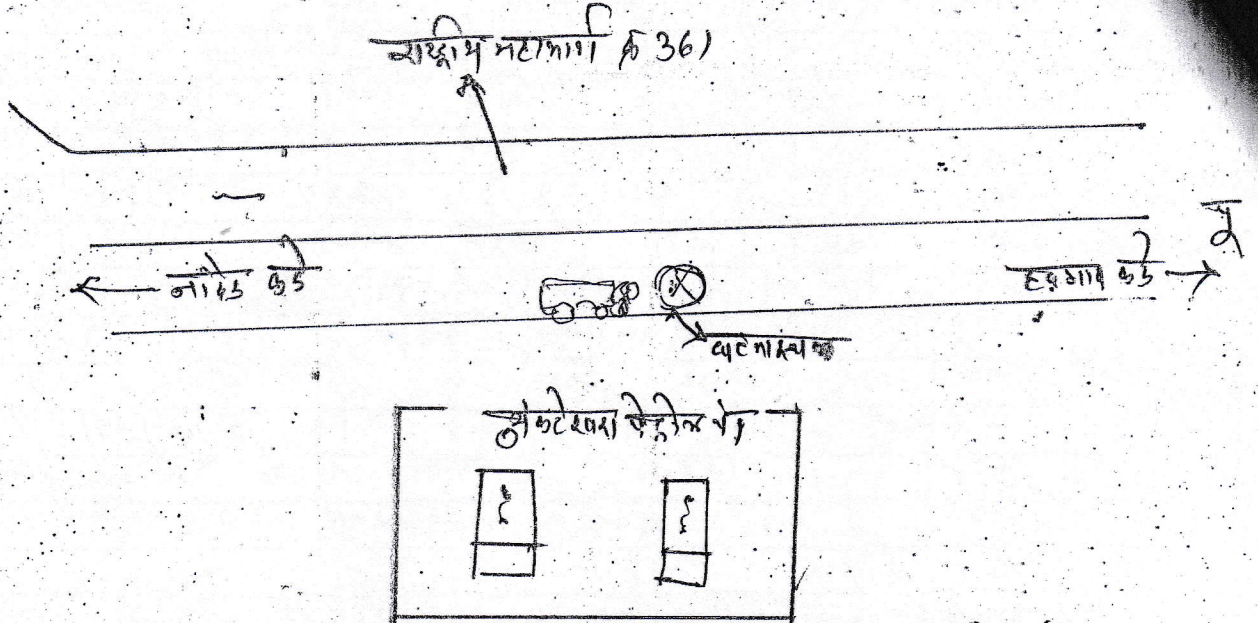 राष्ट्रीय महामार्ग क्र 361
पू
नांदेड कडे
हदगाव कडे
घटनास्थळ
व्यंकटेश्वरा पेट्रोल पंप